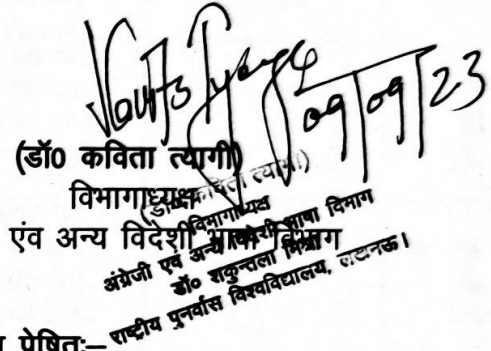 Kavita Tyagi
09/09/23
(डॉ0 कविता त्यागी)
विभागाध्यक्ष
एंव अन्य विदेशी भाषा विभाग
(डॉ0 कविता त्यागी)
विभागाध्यक्ष
अंग्रेजी एवं अन्य विदेशी भाषा विभाग
डॉ0 शकुन्तला मिश्रा
राष्ट्रीय पुनर्वास विश्वविद्यालय, लखनऊ।
प्रेषितः–